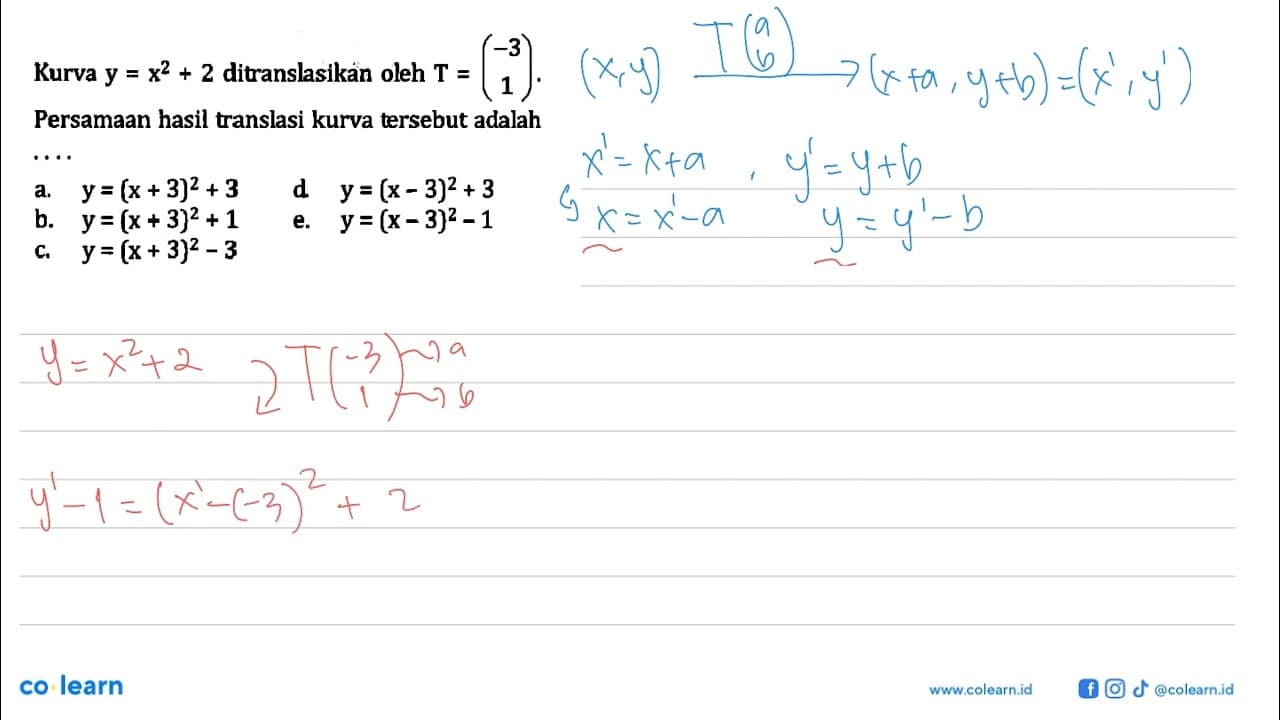 Kurva y = x² + 2 ditranslasikan oleh T = (-3 1).
Persamaan hasil translasi kurva tersebut adalah
....
a. y = (x + 3)² + 3 d y = (x - 3)² + 3
b. y = (x + 3)² + 1 e. y = (x - 3)² - 1
c. y = (x + 3)² - 3
(x,y) T(a b) → (x+a, y+b) = (x', y')
x' = x+a , y' = y+b
x = x'-a y = y'-b
y = x²+2 T(-3 1) a b
y'-1 = (x'-(-3)² + 2
co learn
www.colearn.id @colearn.id